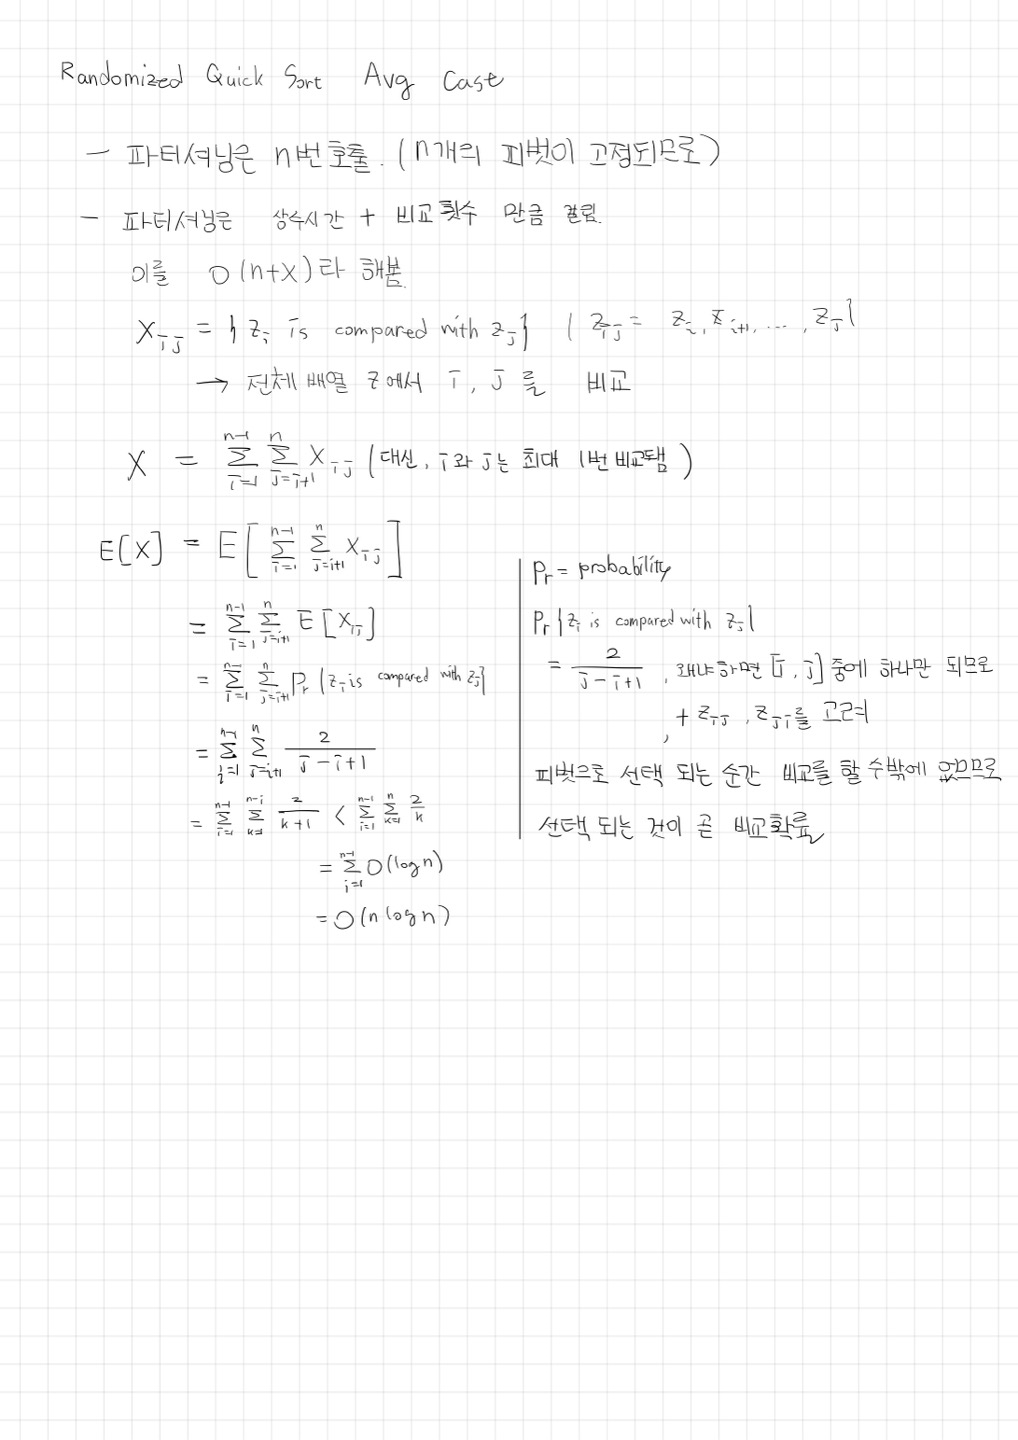 Randomized Quick Sort Avg Case
- 파티셔닝은 n번 호출. (n개의 피벗이 고정되므로)
- 파티셔닝은 상수시간 + 비교 횟수 만큼 걸림.
이를 O(n+X)라 해봄.
X_{ij} = { z_i is compared with z_j } { Z_{ij} = z_i, z_{i+1}, ..., z_j }
→ 전체 배열 z에서 i, j를 비교
X = \sum_{i=1}^{n-1} \sum_{j=i+1}^{n} X_{ij} (대신, i와 j는 최대 1번 비교됨)
E[X] = E[ \sum_{i=1}^{n-1} \sum_{j=i+1}^{n} X_{ij} ]
= \sum_{i=1}^{n-1} \sum_{j=i+1}^{n} E[X_{ij}]
= \sum_{i=1}^{n-1} \sum_{j=i+1}^{n} Pr {z_i is compared with z_j}
= \sum_{i=1}^{n-1} \sum_{j=i+1}^{n} \frac{2}{j-i+1}
= \sum_{i=1}^{n-1} \sum_{k=1}^{n-i} \frac{2}{k+1} < \sum_{i=1}^{n-1} \sum_{k=1}^{n} \frac{2}{k}
= \sum_{i=1}^{n-1} O(log n)
= O(n log n)
Pr = probability
Pr {z_i is compared with z_j}
= \frac{2}{j-i+1}, 왜냐하면 [i, j] 중에 하나만 되므로
, + z_{ij}, z_{ji}를 고려
피벗으로 선택 되는 순간 비교를 할 수밖에 없으므로
선택 되는 것이 곧 비교확률